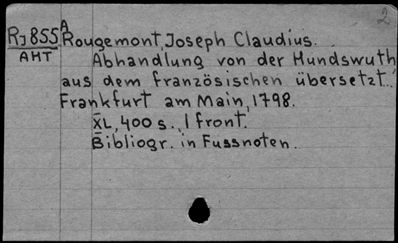 2
RJ855 A Rougemont, Joseph Claudius.
AHT Abhandlung von der Hundswuth
aus dem französischen übersetzt.
Frankfurt am Main, 1798.
XL, 400 s., 1 front.
Bibliogr. in Fussnoten.